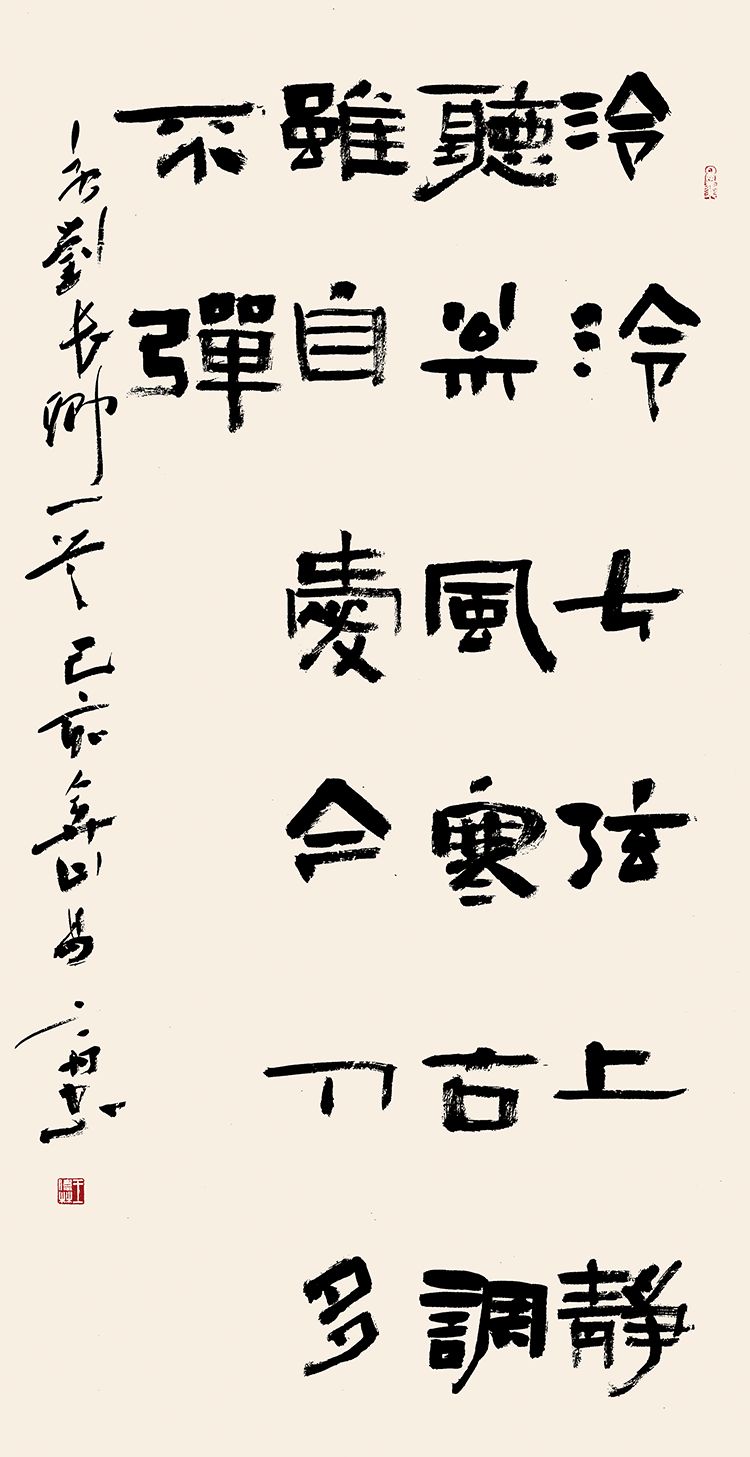 泠泠七弦上靜
聽松風寒古調
雖自愛今人多
不彈
劉長卿一首己亥